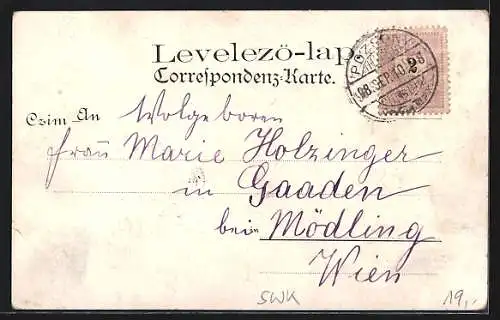 Levelezö-lap.
Correspondenz-Karte.
POZSONY
98 SEP. 10
2
Czim An Wolgeboren
frau Marie Holzinger
in Gaaden
bei Mödling
Wien
SWK
19,-